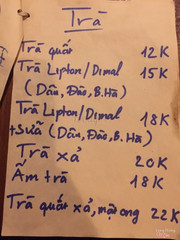 Trà
Trà quất 12K
Trà Lipton/Dimal 15K
(Dâu, Đào, B.Hà)
Trà Lipton/Dimal 18K
+ Sữa (Dâu, Đào, B.Hà)
Trà xả 20K
Ấm trà 18K
Trà quất xả, mật ong 22K